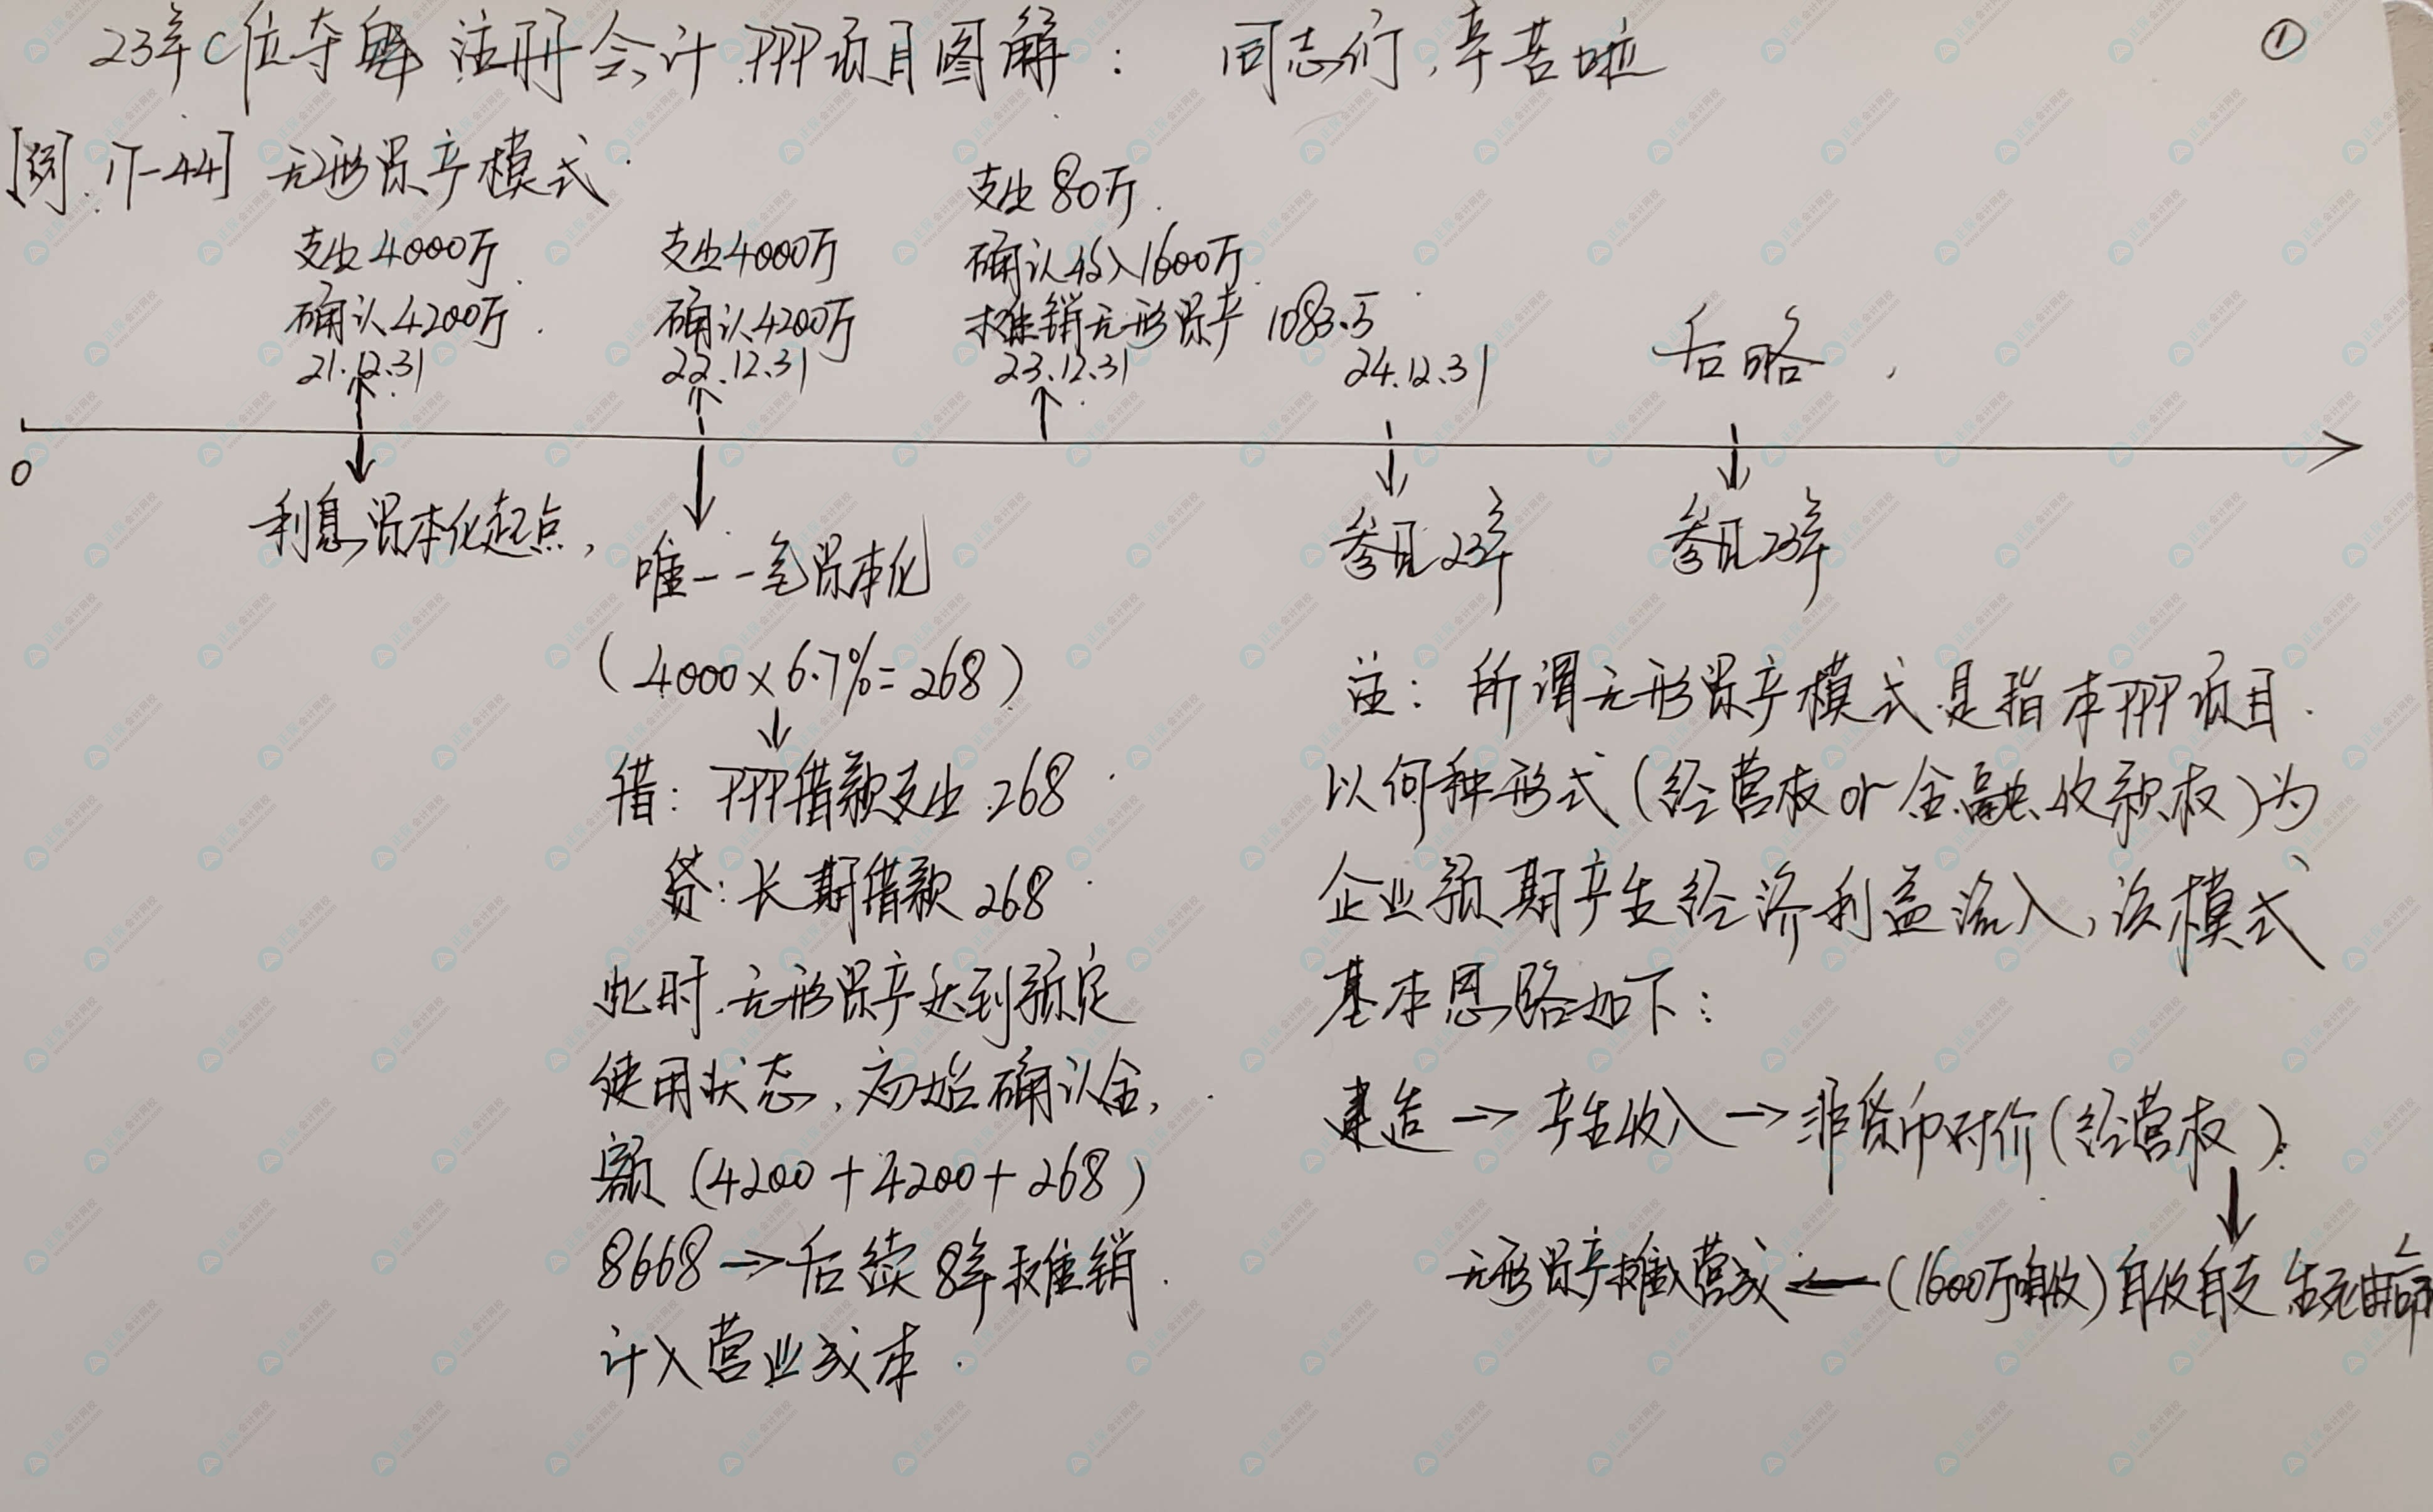 23年C位夺魁 注册会计 PPP项目图解： 同志们，辛苦啦 ①
[例.17-44] 无形资产模式
支出80万
支出4000万 支出4000万 确认收入1600万
确认4200万 确认4200万 摊销无形资产 1083.5
21.12.31 22.12.31 23.12.31 24.12.31 后略
0
利息资本化起点， 参见23年 参见23年
唯一一笔资本化
(4000×6.7%=268)
借：PPP借款支出 268
贷：长期借款 268
此时，无形资产达到预定
使用状态，初始确认金
额 (4200+4200+268)
8668→后续8年摊销
计入营业成本
注：所谓无形资产模式是指本PPP项目
以何种形式(经营权or金融收款权)为
企业预期产生经济利益流入，该模式
基本思路如下：
建造→产生收入→非货币对价(经营权)
↓
无形资产摊入营成←(1600万自收)自收自支 生死由命